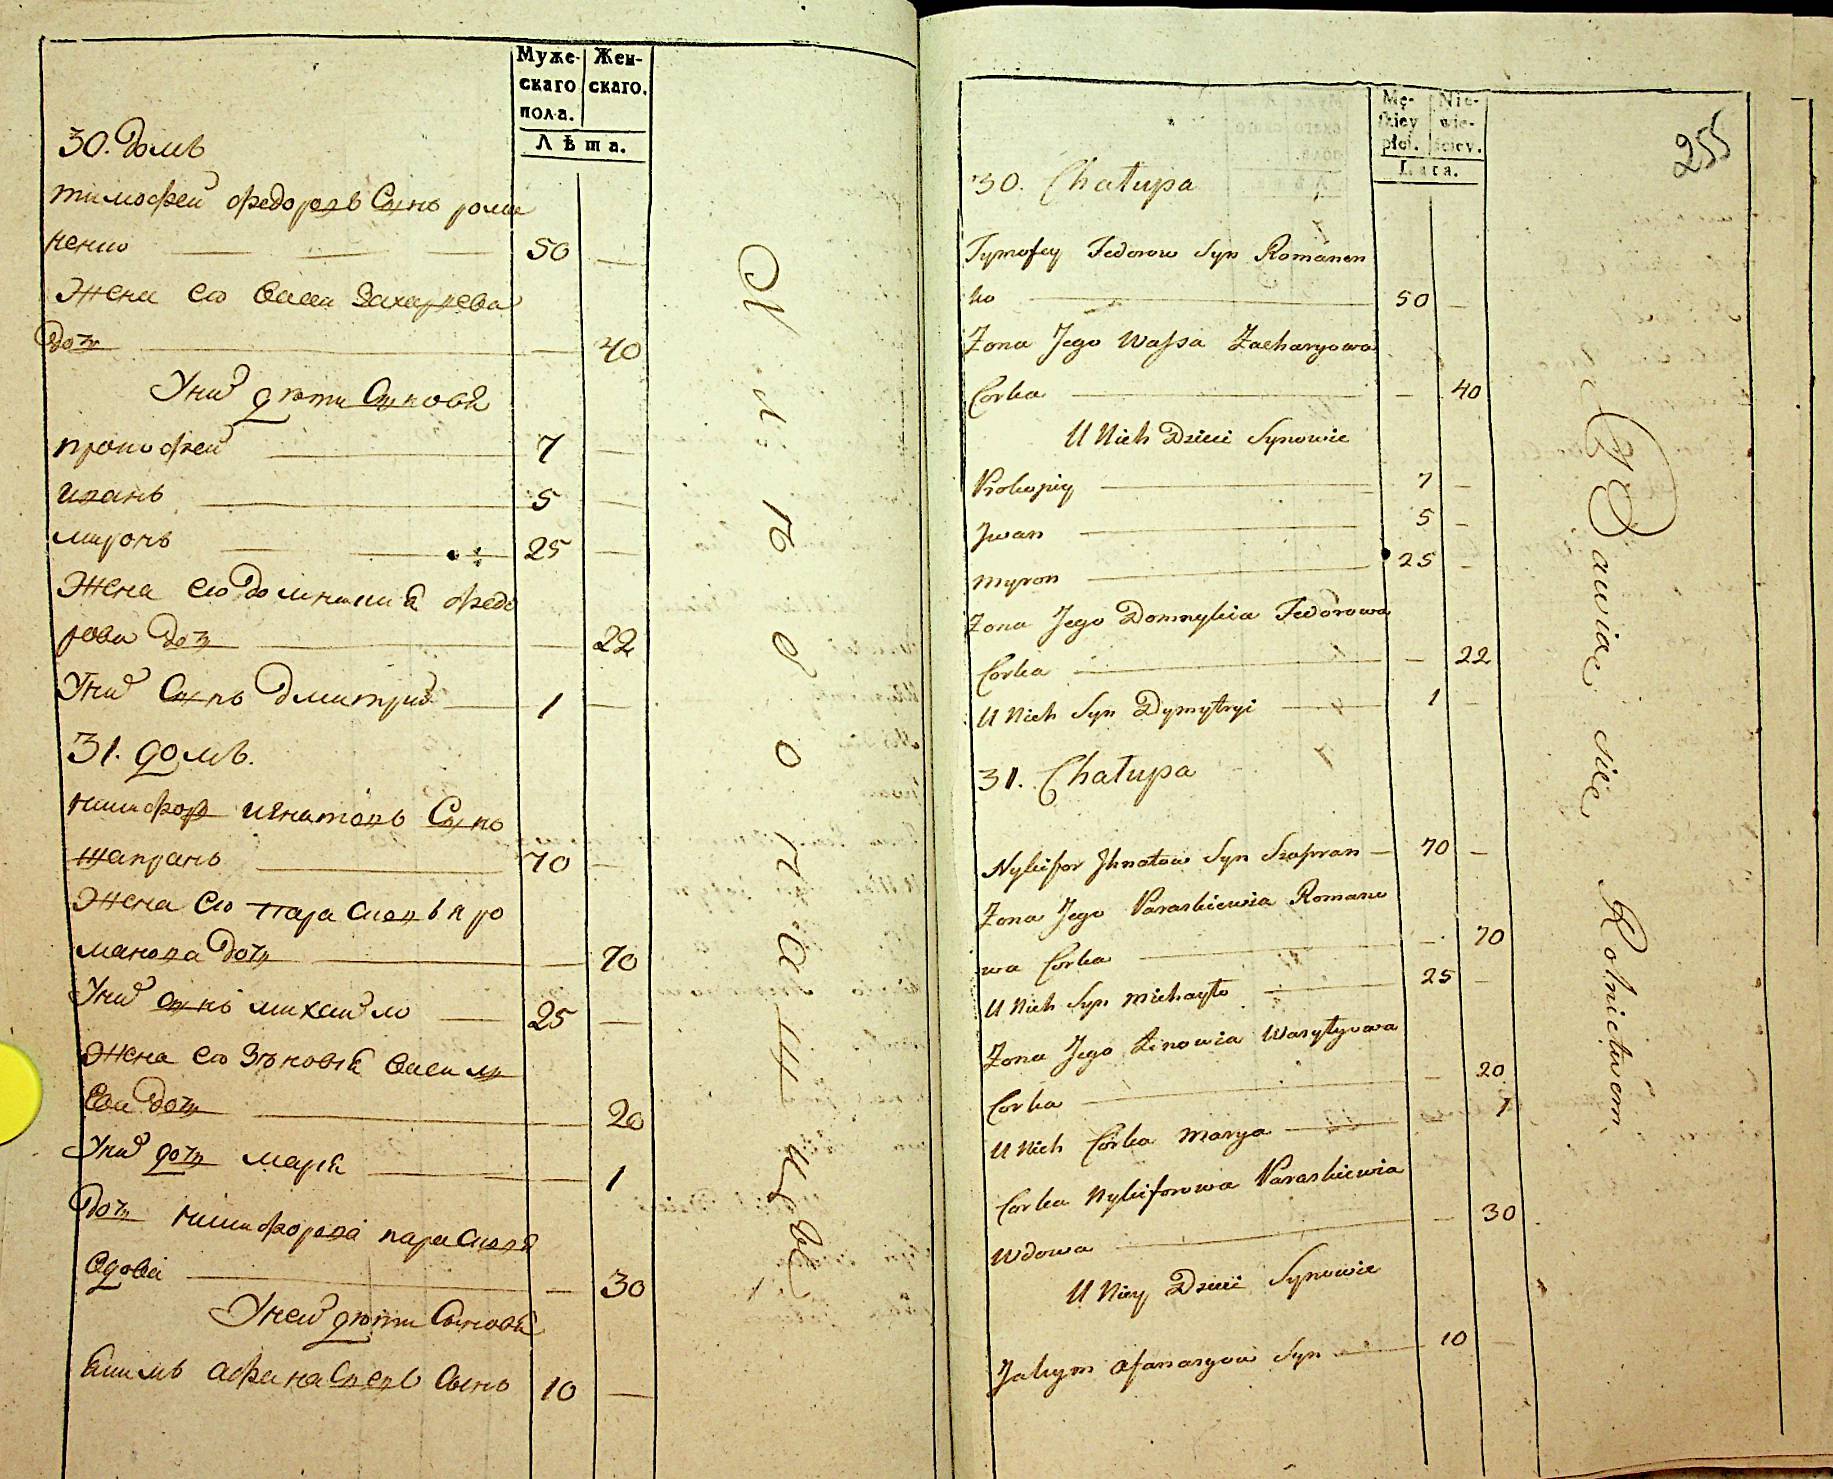 Муже-
скаго
пола.
Жен-
скаго.
Лѣта.
30. домъ
тимофей федоровъ Сынъ рома
ненко 50
Жена его васса Захарьева
дочь 40
У них дѣти Сыновя
прокофей 7
иванъ 5
миронъ 25
Жена его домникия федо
рова дочь 22
У них Сынъ дмитрий 1
31. домъ.
никифор игнатовъ Сынъ
шапранъ 70
Жена его Параскевья ро
манова дочь 70
У них сынъ михайло 25
Жена его Зѣновия васил
ева дочь 20
У них дочь мария 1
дочь никифорова параскевя
вдова 30
У ней дѣти Сыновя
якимъ афанасиевъ Сынъ 10
255
Mę-
skiey
płci.
Nie-
wie-
ściey.
Lata.
30. Chałupa
Tymofey Fedorow Syn Romanen
ko 50
Zona Jego Wassa Zacharyowa
Corka 40
U Nich Dzieci Synowie
Prokopiy 7
Jwan 5
Myron 25
Zona Jego Domnykia Fedorowa
Corka 22
U Nich Syn Dymytryi 1
31. Chałupa
Nykifor Jhnatow Syn Szapran 70
Zona Jego Paraskiewia Romano
wa Corka 70
U Nich Syn Michayło 25
Zona Jego Zinowia Wasylyowa
Corka 20
U Nich Córka Marya 1
Corka Nykiforowa Paraskiewia
Wdowa 30
U Niey Dzieci Synowie
Jakym Afanasyow Syn 10
Bawiąć się Rolnictwem